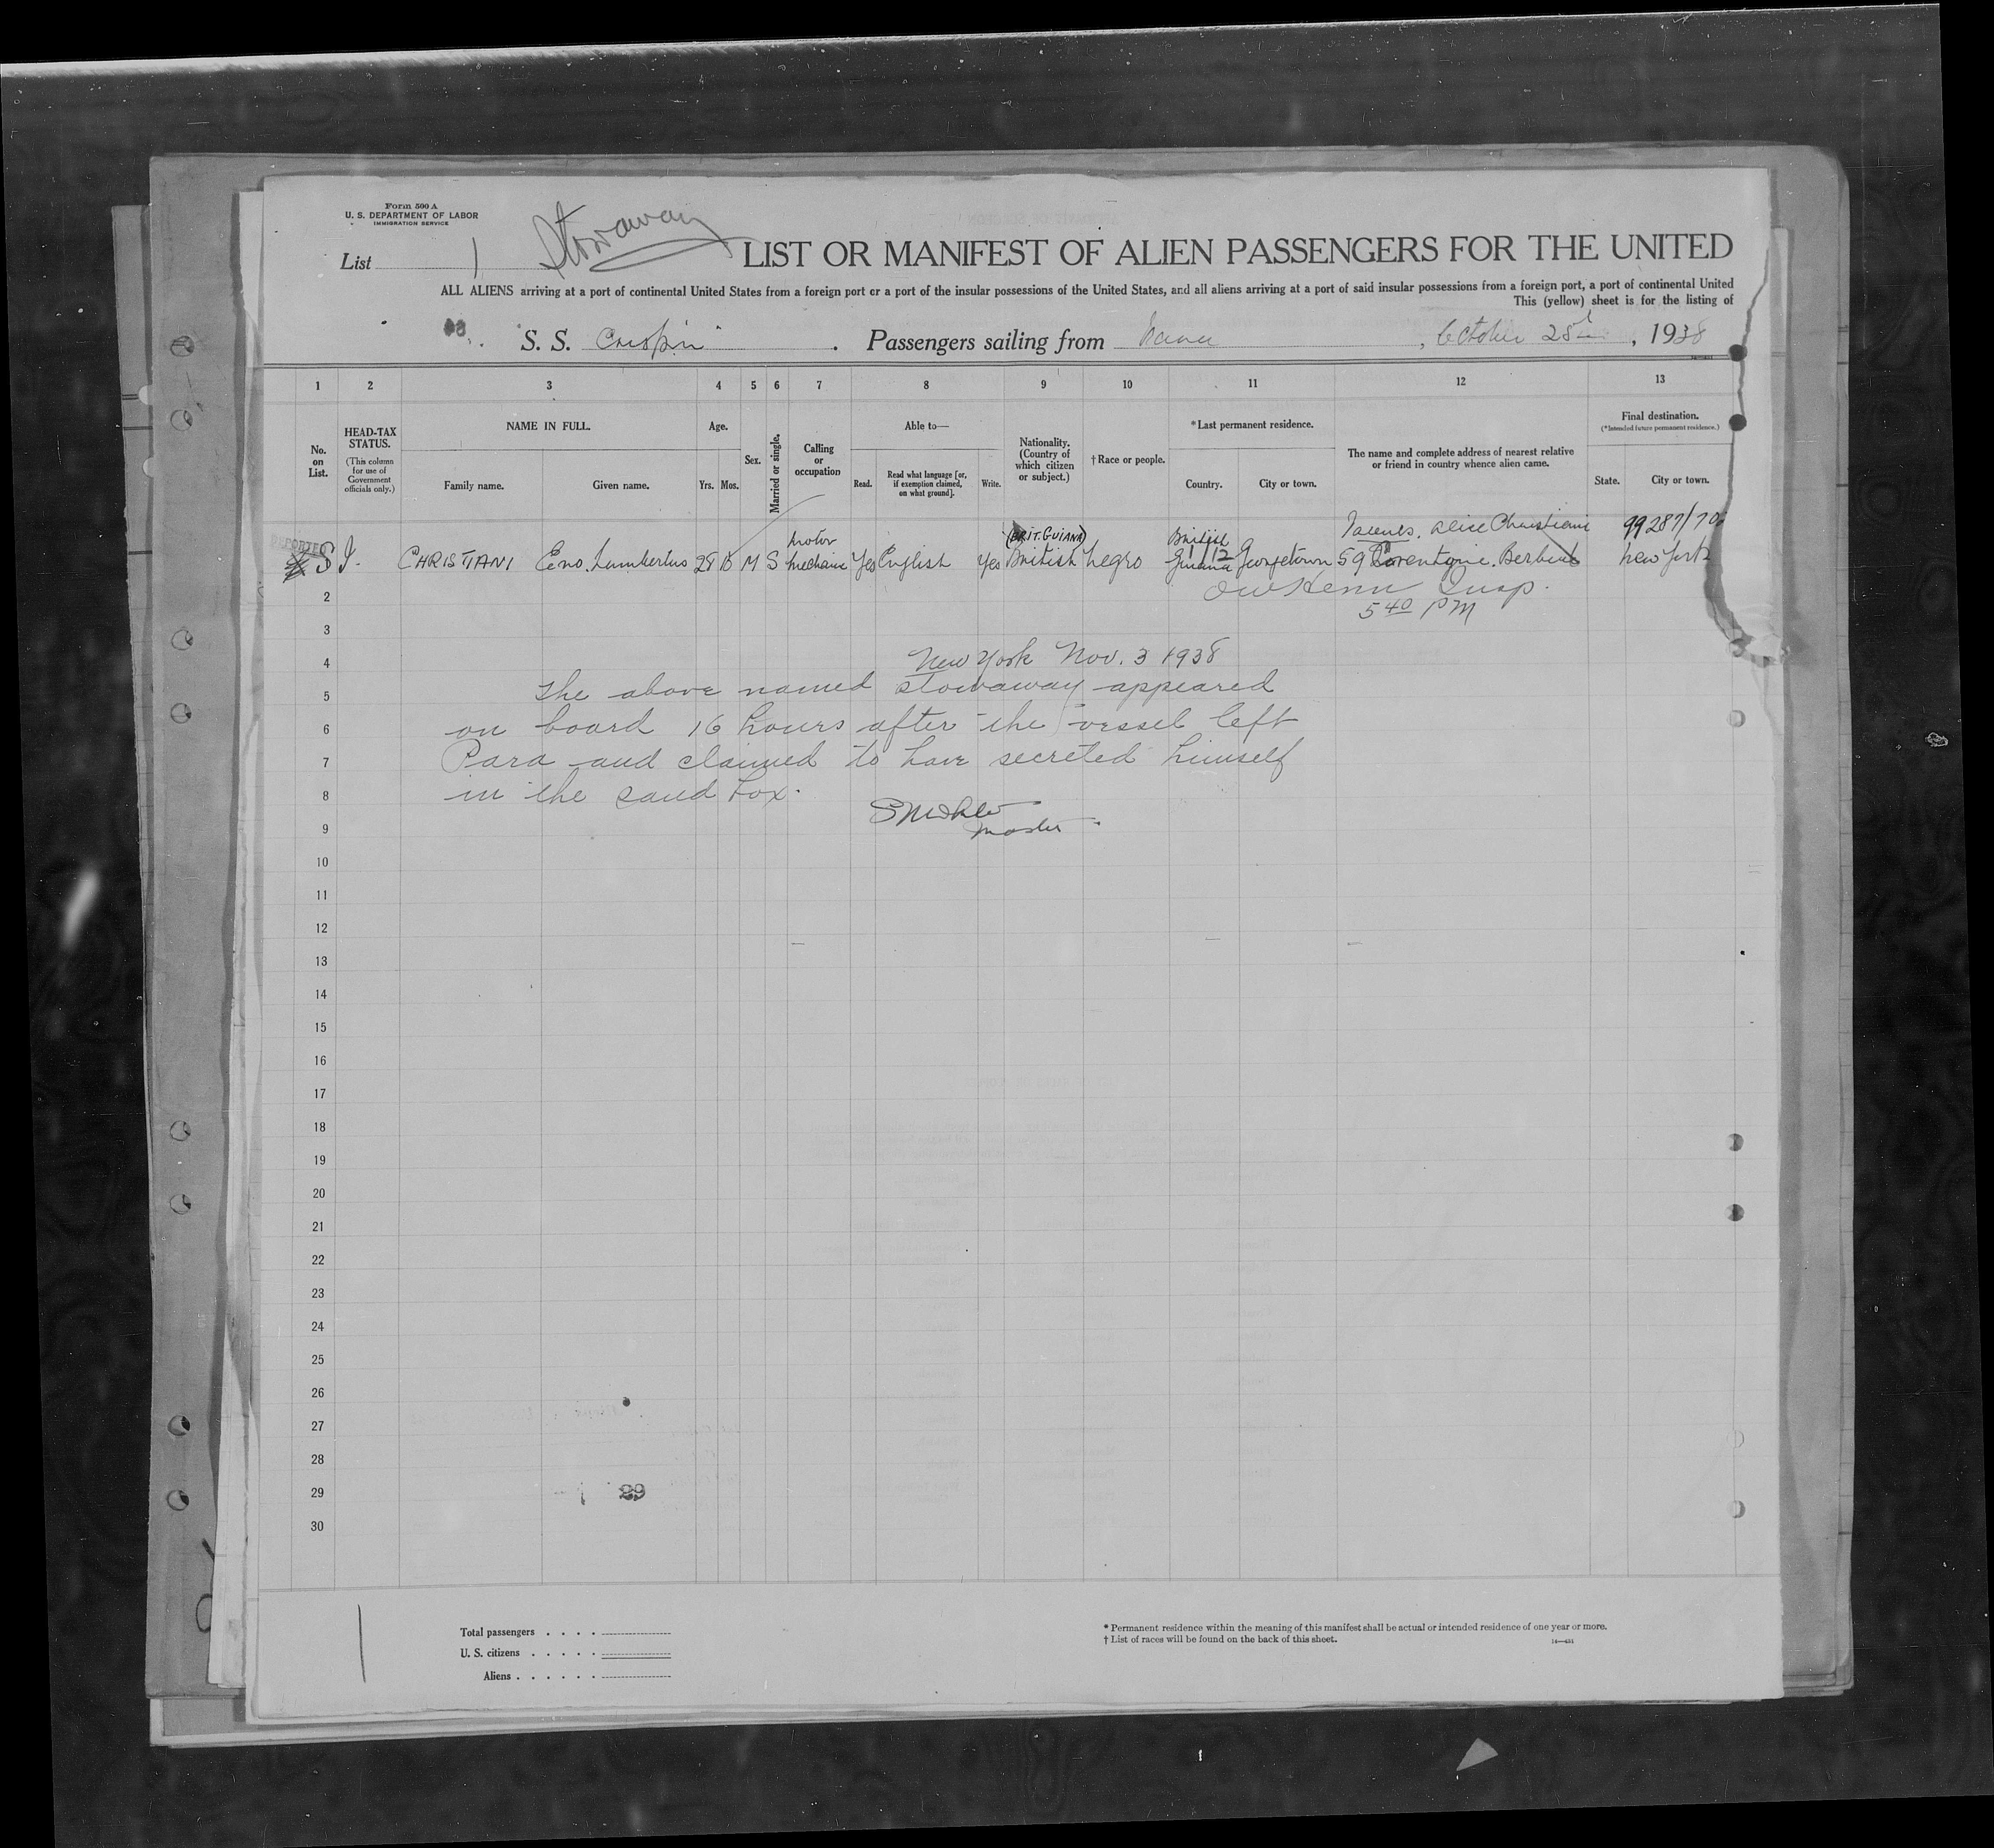 Form 500 A
U. S. DEPARTMENT OF LABOR
IMMIGRATION SERVICE
List 1 Stowaway
LIST OR MANIFEST OF ALIEN PASSENGERS FOR THE UNITED
ALL ALIENS arriving at a port of continental United States from a foreign port or a port of the insular possessions of the United States, and all aliens arriving at a port of said insular possessions from a foreign port, a port of continental United
This (yellow) sheet is for the listing of
S. S. Crispin . Passengers sailing from Para , October 25 , 1938
1 2 3 4 5 6 7 8 9 10 11 12 13
No. on List.
HEAD-TAX STATUS.
(This column for use of Government officials only.)
NAME IN FULL.
Family name. Given name.
Age.
Yrs. Mos.
Sex.
Married or single.
Calling or occupation
Able to—
Read. Read what language [or, if exemption claimed, on what ground]. Write.
Nationality. (Country of which citizen or subject.)
† Race or people.
*Last permanent residence.
Country. City or town.
The name and complete address of nearest relative or friend in country whence alien came.
Final destination.
(*Intended future permanent residence.)
State. City or town.
motor (BRIT. GUIANA) British Parents. Alice Christiani 99287/70
S I. CHRISTIANI Eno. Lumbertus 28 M S mechanic Yes English Yes British Negro Guiana Georgetown 59 Corentyne. Berbice New York
1/12
Insp.
5 40 PM
2
3
4
New York Nov. 3 1938
5
The above named stowaway appeared
6
on board 16 hours after the vessel left
7
Para and claimed to have secreted himself
8
in the sand box.
9
Master
10
11
12
13
14
15
16
17
18
19
20
21
22
23
24
25
26
27
28
29
30
Total passengers . . . .
U. S. citizens . . . . .
Aliens . . . . . .
* Permanent residence within the meaning of this manifest shall be actual or intended residence of one year or more.
† List of races will be found on the back of this sheet.
14—434